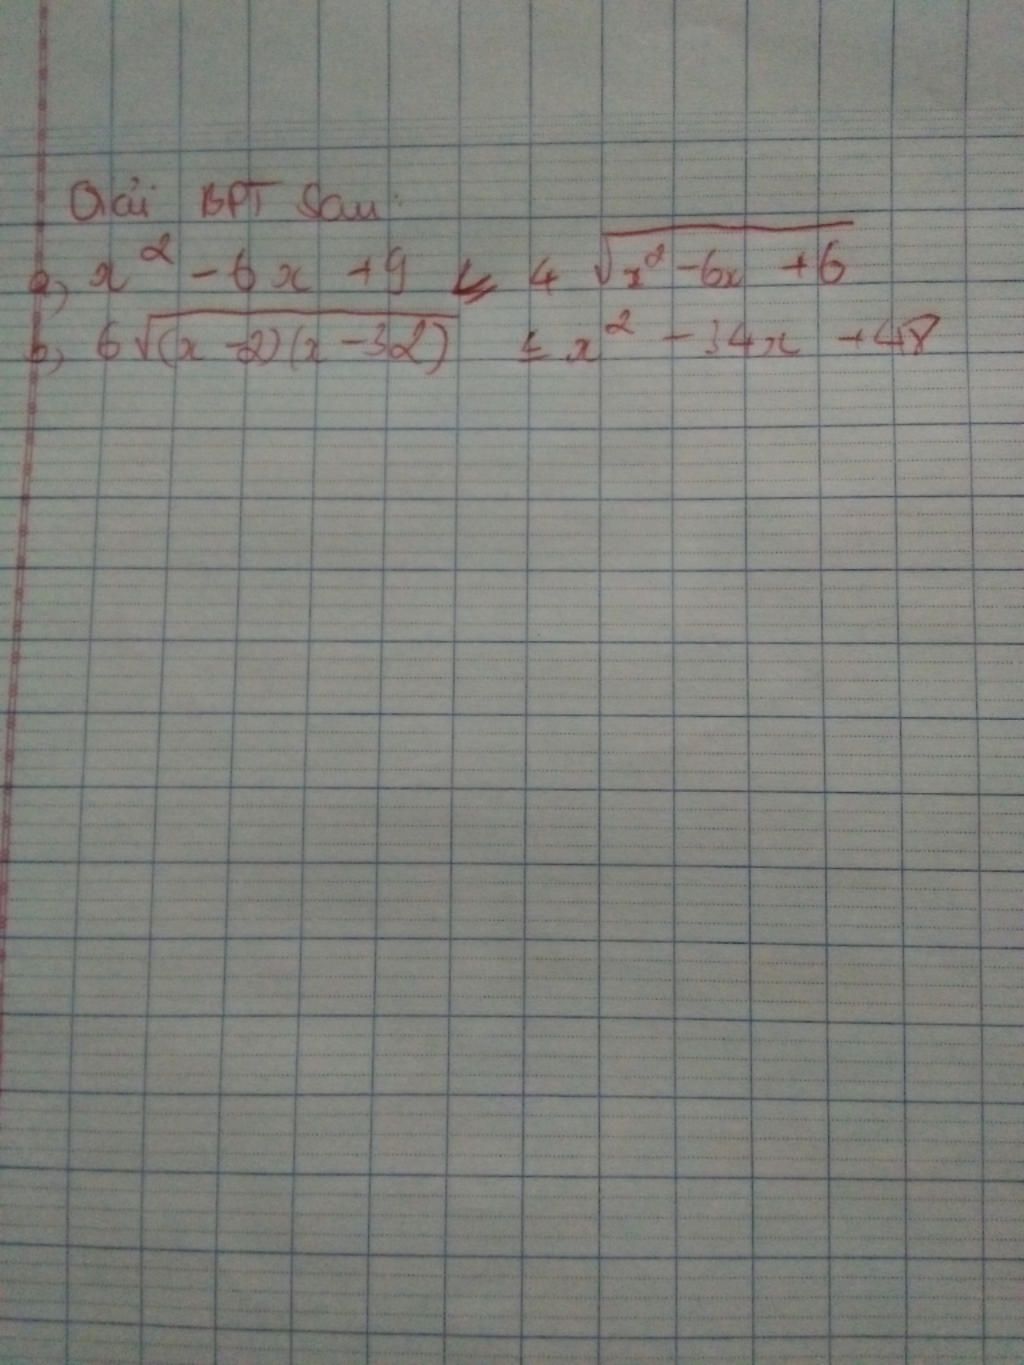 Giải BPT sau:
a, x² - 6x + 9 ≤ 4 √(x² - 6x + 6)
b, 6√((x - 2)(x - 32)) ≤ x² - 34x + 48